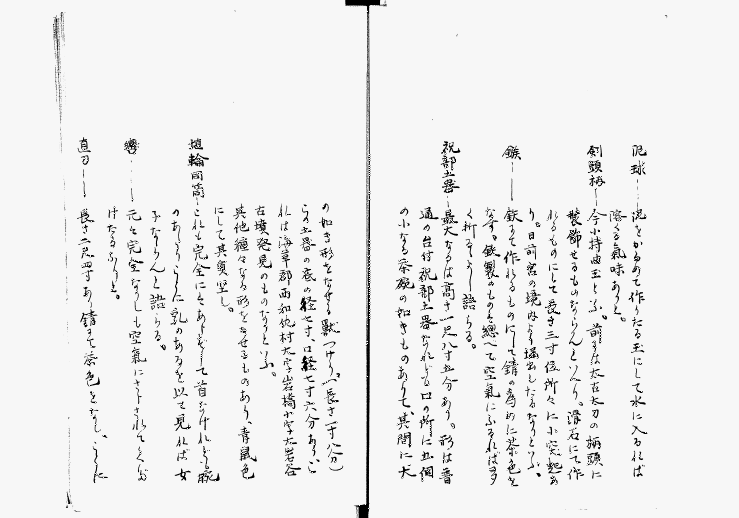 泥球――泥をかためて作りたる玉にして水に入るれば
溶くる氣味ありと。
剣頭柄―今小持曲玉と云ふ。前には太古太刀の柄頭に
装飾せるものならんと云へり。滑石にて作
れるものにして長さ三寸位所々に小突起あ
り。日前宮の境内より堀出したるなりといふ。
鏃――鉄にて作れるものにして錆の為めに茶色を
なす。鉄製のものは總へて空氣にふるれば
く折るよし語らる。
祝部土器―最大なるは高さ一尺八寸五分あり。形は普
通の台付祝部土器なれども口の所に五個
の小なる茶碗の如きものありて、其間に犬
の如き形をなせる獣つけり。(長さ一寸八分)
らの土器の底の経七寸、口経七寸六分あり。こ
れは海草郡西和佐村大字岩橋小字大岩谷
古墳発見のものなりといふ。
其他種々なる形をなせるものあり、青鼠色
にして其質堅し。
埴輪円筒―これも完全にはあらずして首なけれども腕
のあたりに乳のあるを以て見れば女
子ならんと語らる。
轡――元は完全なりしも空氣にさらされて
けたるなりと。
直刀――長さ二尺四寸あり錆にて茶色をなし、